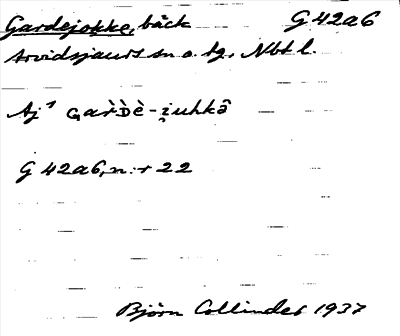 Gardejokke, bäck G 42a6
Arvidsjaurs sn o. tg, Nbt l.
Aj¹ GàrD̀è-i̯uhkâ
G 42a6, n:r 22
Björn Collinder 1937